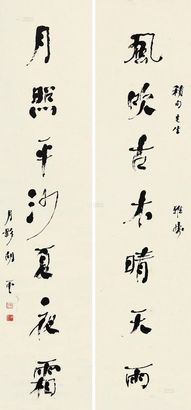 風吹古木晴天雨
積勻先生 雅屬
月照平沙夏夜霜